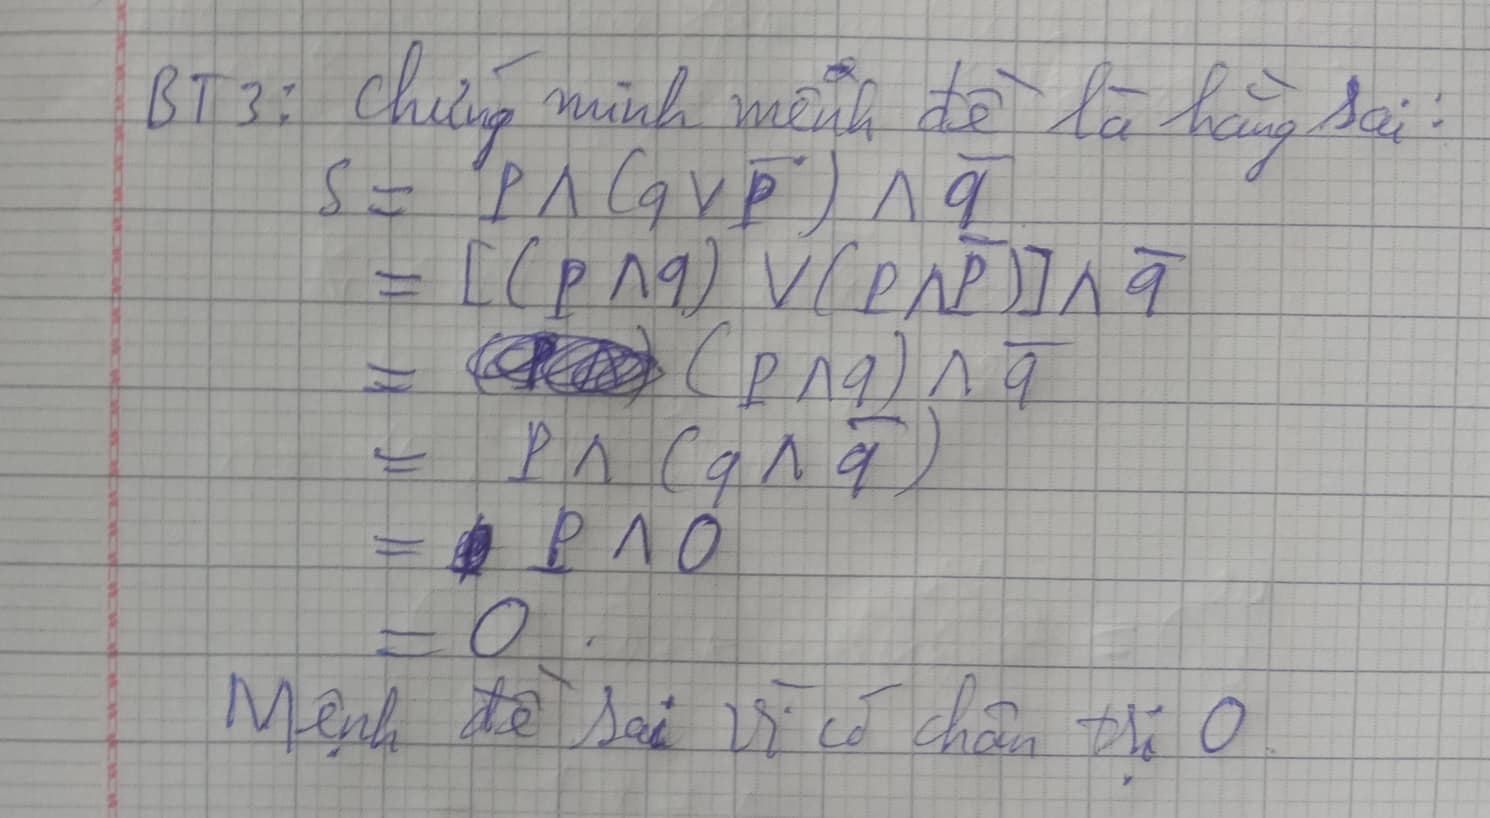 BT3: Chứng minh mệnh đề là hằng sai:
S = P ∧ (q ∨ p̅) ∧ q̅
= [(p ∧ q) ∨ (p ∧ p̅)] ∧ q̅
= (p ∧ q) ∧ q̅
= P ∧ (q ∧ q̅)
= P ∧ 0
= 0.
Mệnh đề sai vì có chân trị 0.